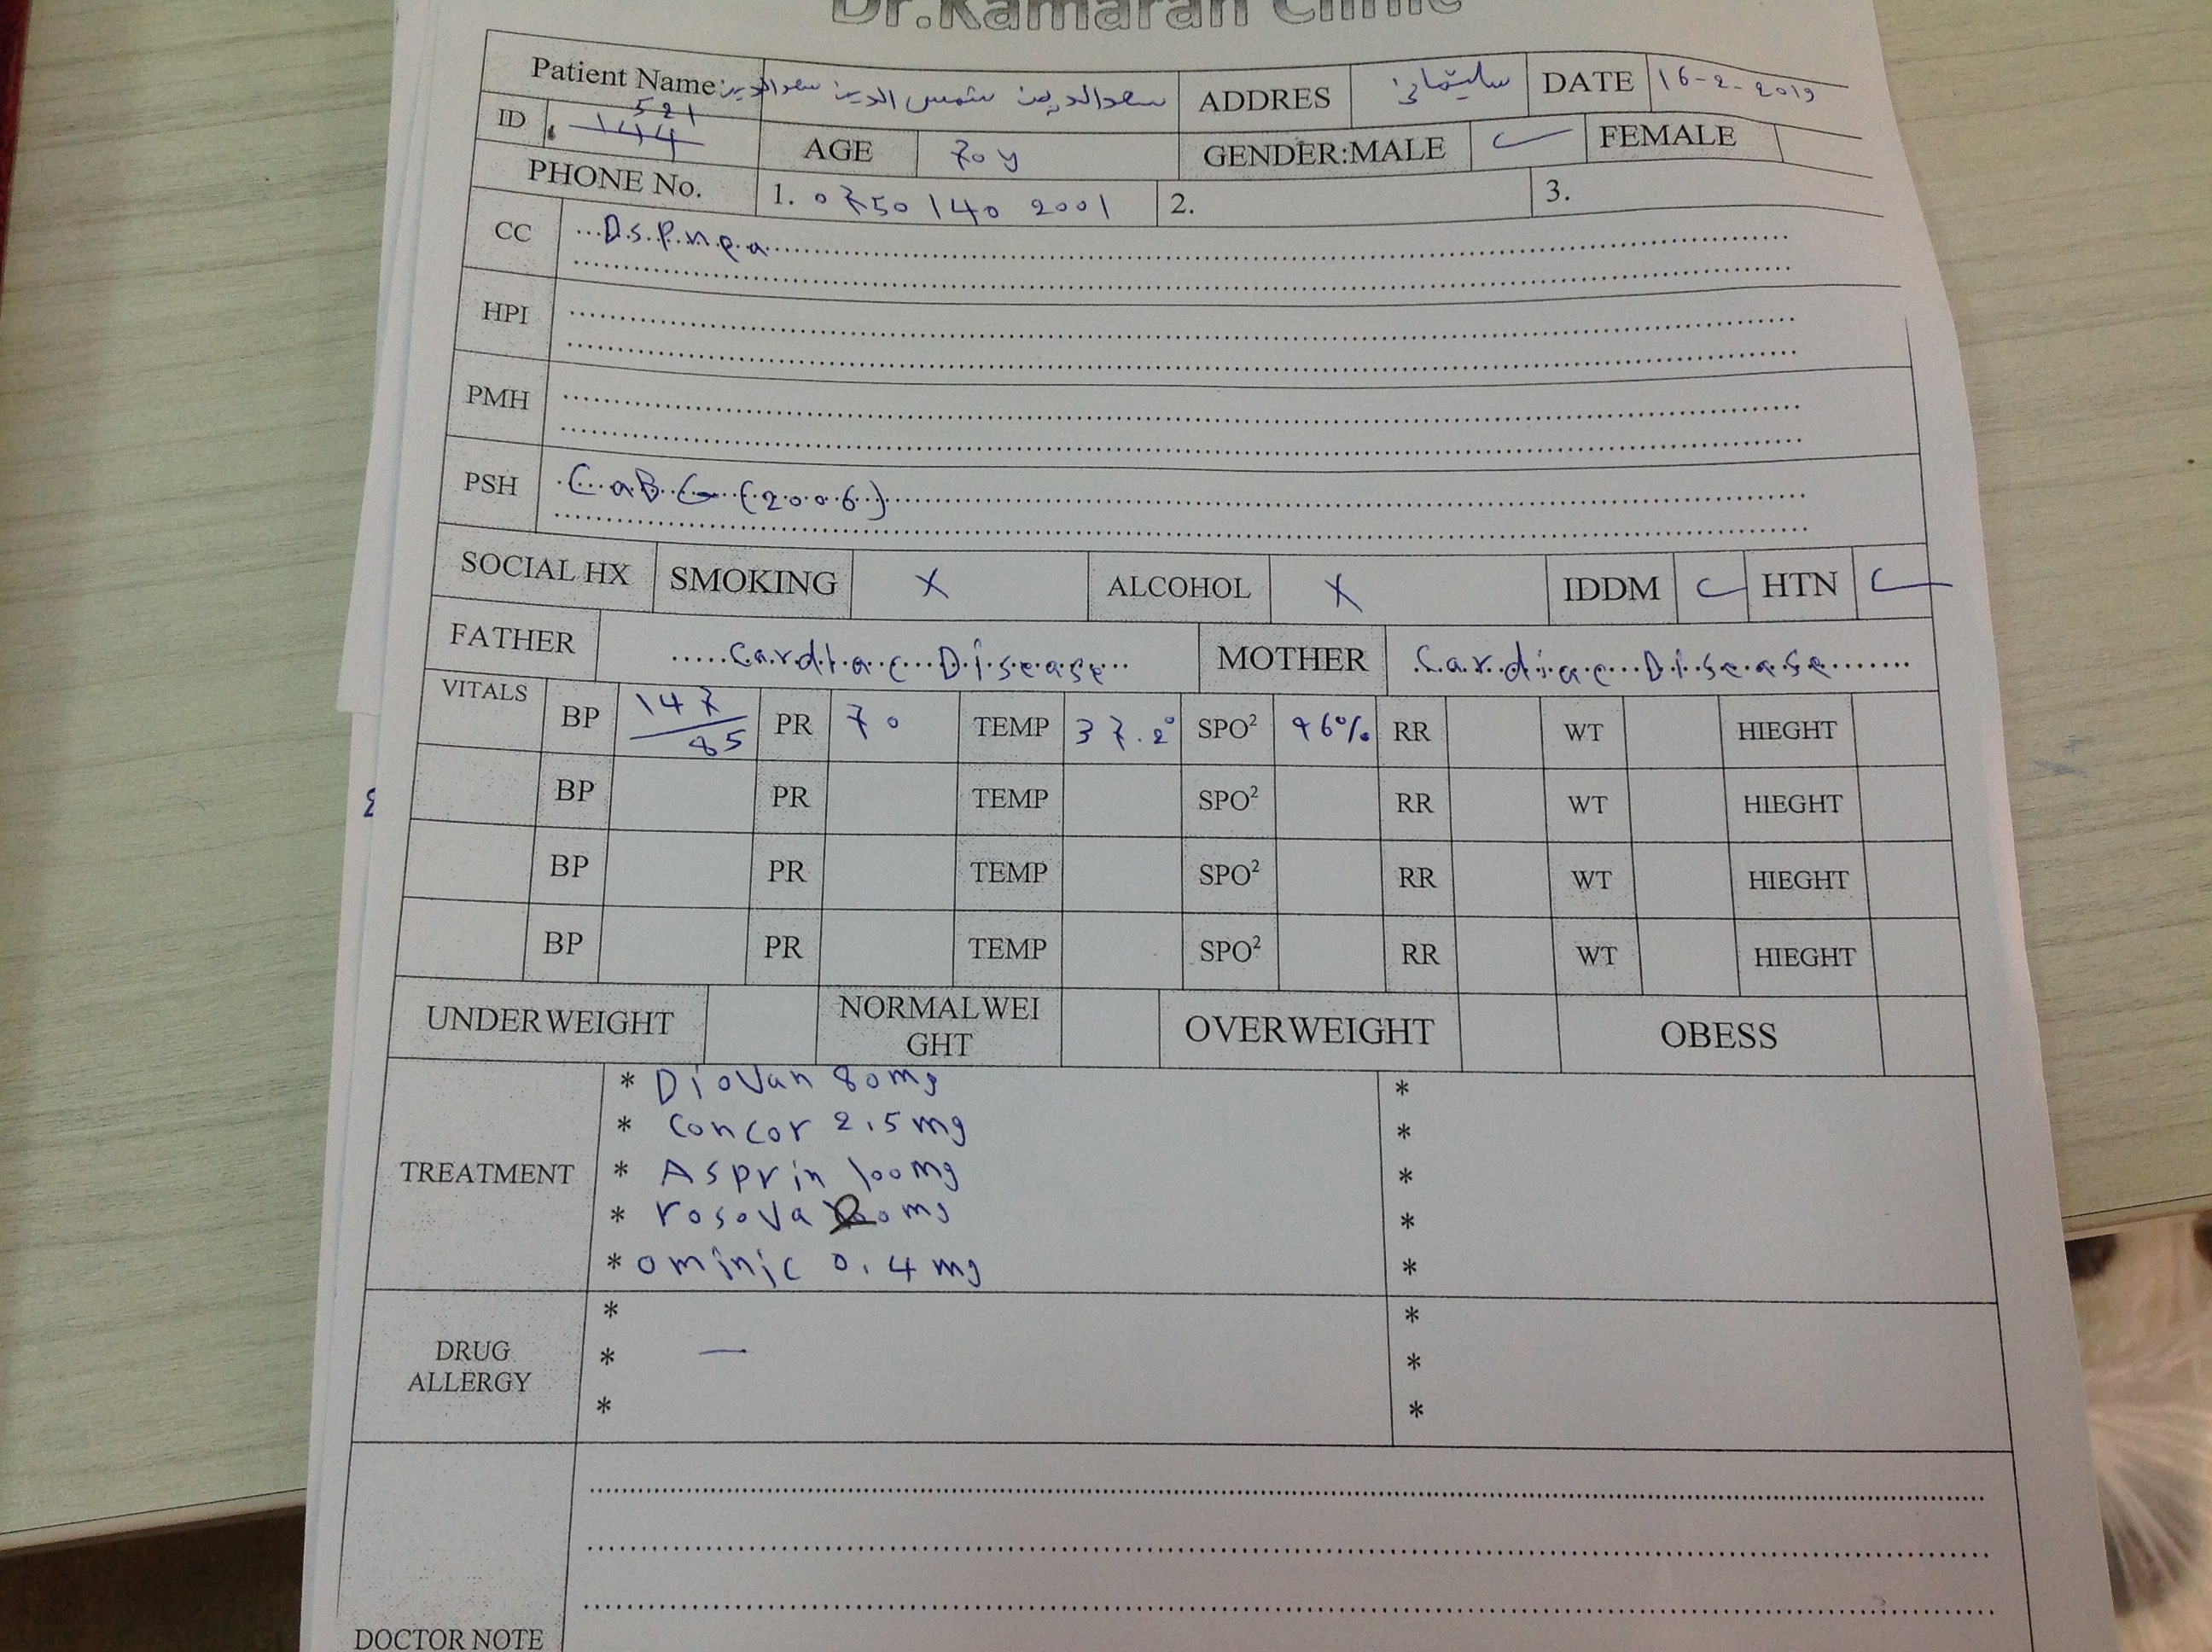 Dr.Kamaran Clinic
Patient Name سعدالدین شمس الدین سعدالدین ADDRES سلێمانی DATE 16-2-2019
ID 521 144 AGE 70 y GENDER:MALE ✓ FEMALE
PHONE No. 1. 0750 140 2001 2. 3.
CC Dspnea
HPI
PMH
PSH CaBG (2006)
SOCIAL HX SMOKING X ALCOHOL X IDDM ✓ HTN ✓
FATHER Cardiac Disease MOTHER Cardiac Disease
VITALS BP 147/85 PR 70 TEMP 37.2° SPO² 96% RR WT HIEGHT
BP PR TEMP SPO² RR WT HIEGHT
BP PR TEMP SPO² RR WT HIEGHT
BP PR TEMP SPO² RR WT HIEGHT
UNDERWEIGHT NORMALWEI
GHT OVERWEIGHT OBESS
TREATMENT
* Diovan 80mg *
* Concor 2.5mg *
* Asprin 100mg *
* rosova 20mg *
* ominic 0.4mg *
DRUG
ALLERGY
* *
* — *
* *
DOCTOR NOTE